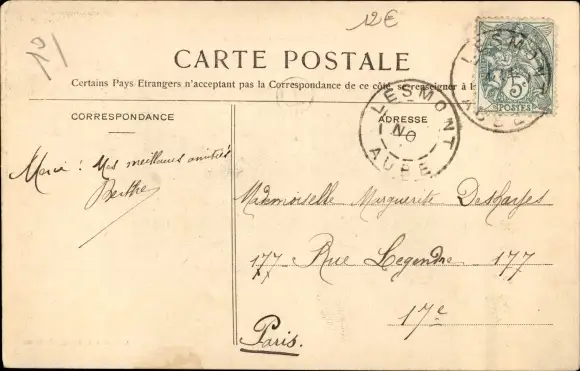 12€
CARTE POSTALE
Certains Pays Etrangers n'acceptant pas la Correspondance de ce côté, se renseigner à
CORRESPONDANCE
ADRESSE
LESMONT
AUBE
LESMONT
AUBE
5c
POSTES
Merci ! Mes meilleures amitiés
Berthe
Mademoiselle Marguerite Deshayes
177 Rue Legendre 177
17e
Paris.